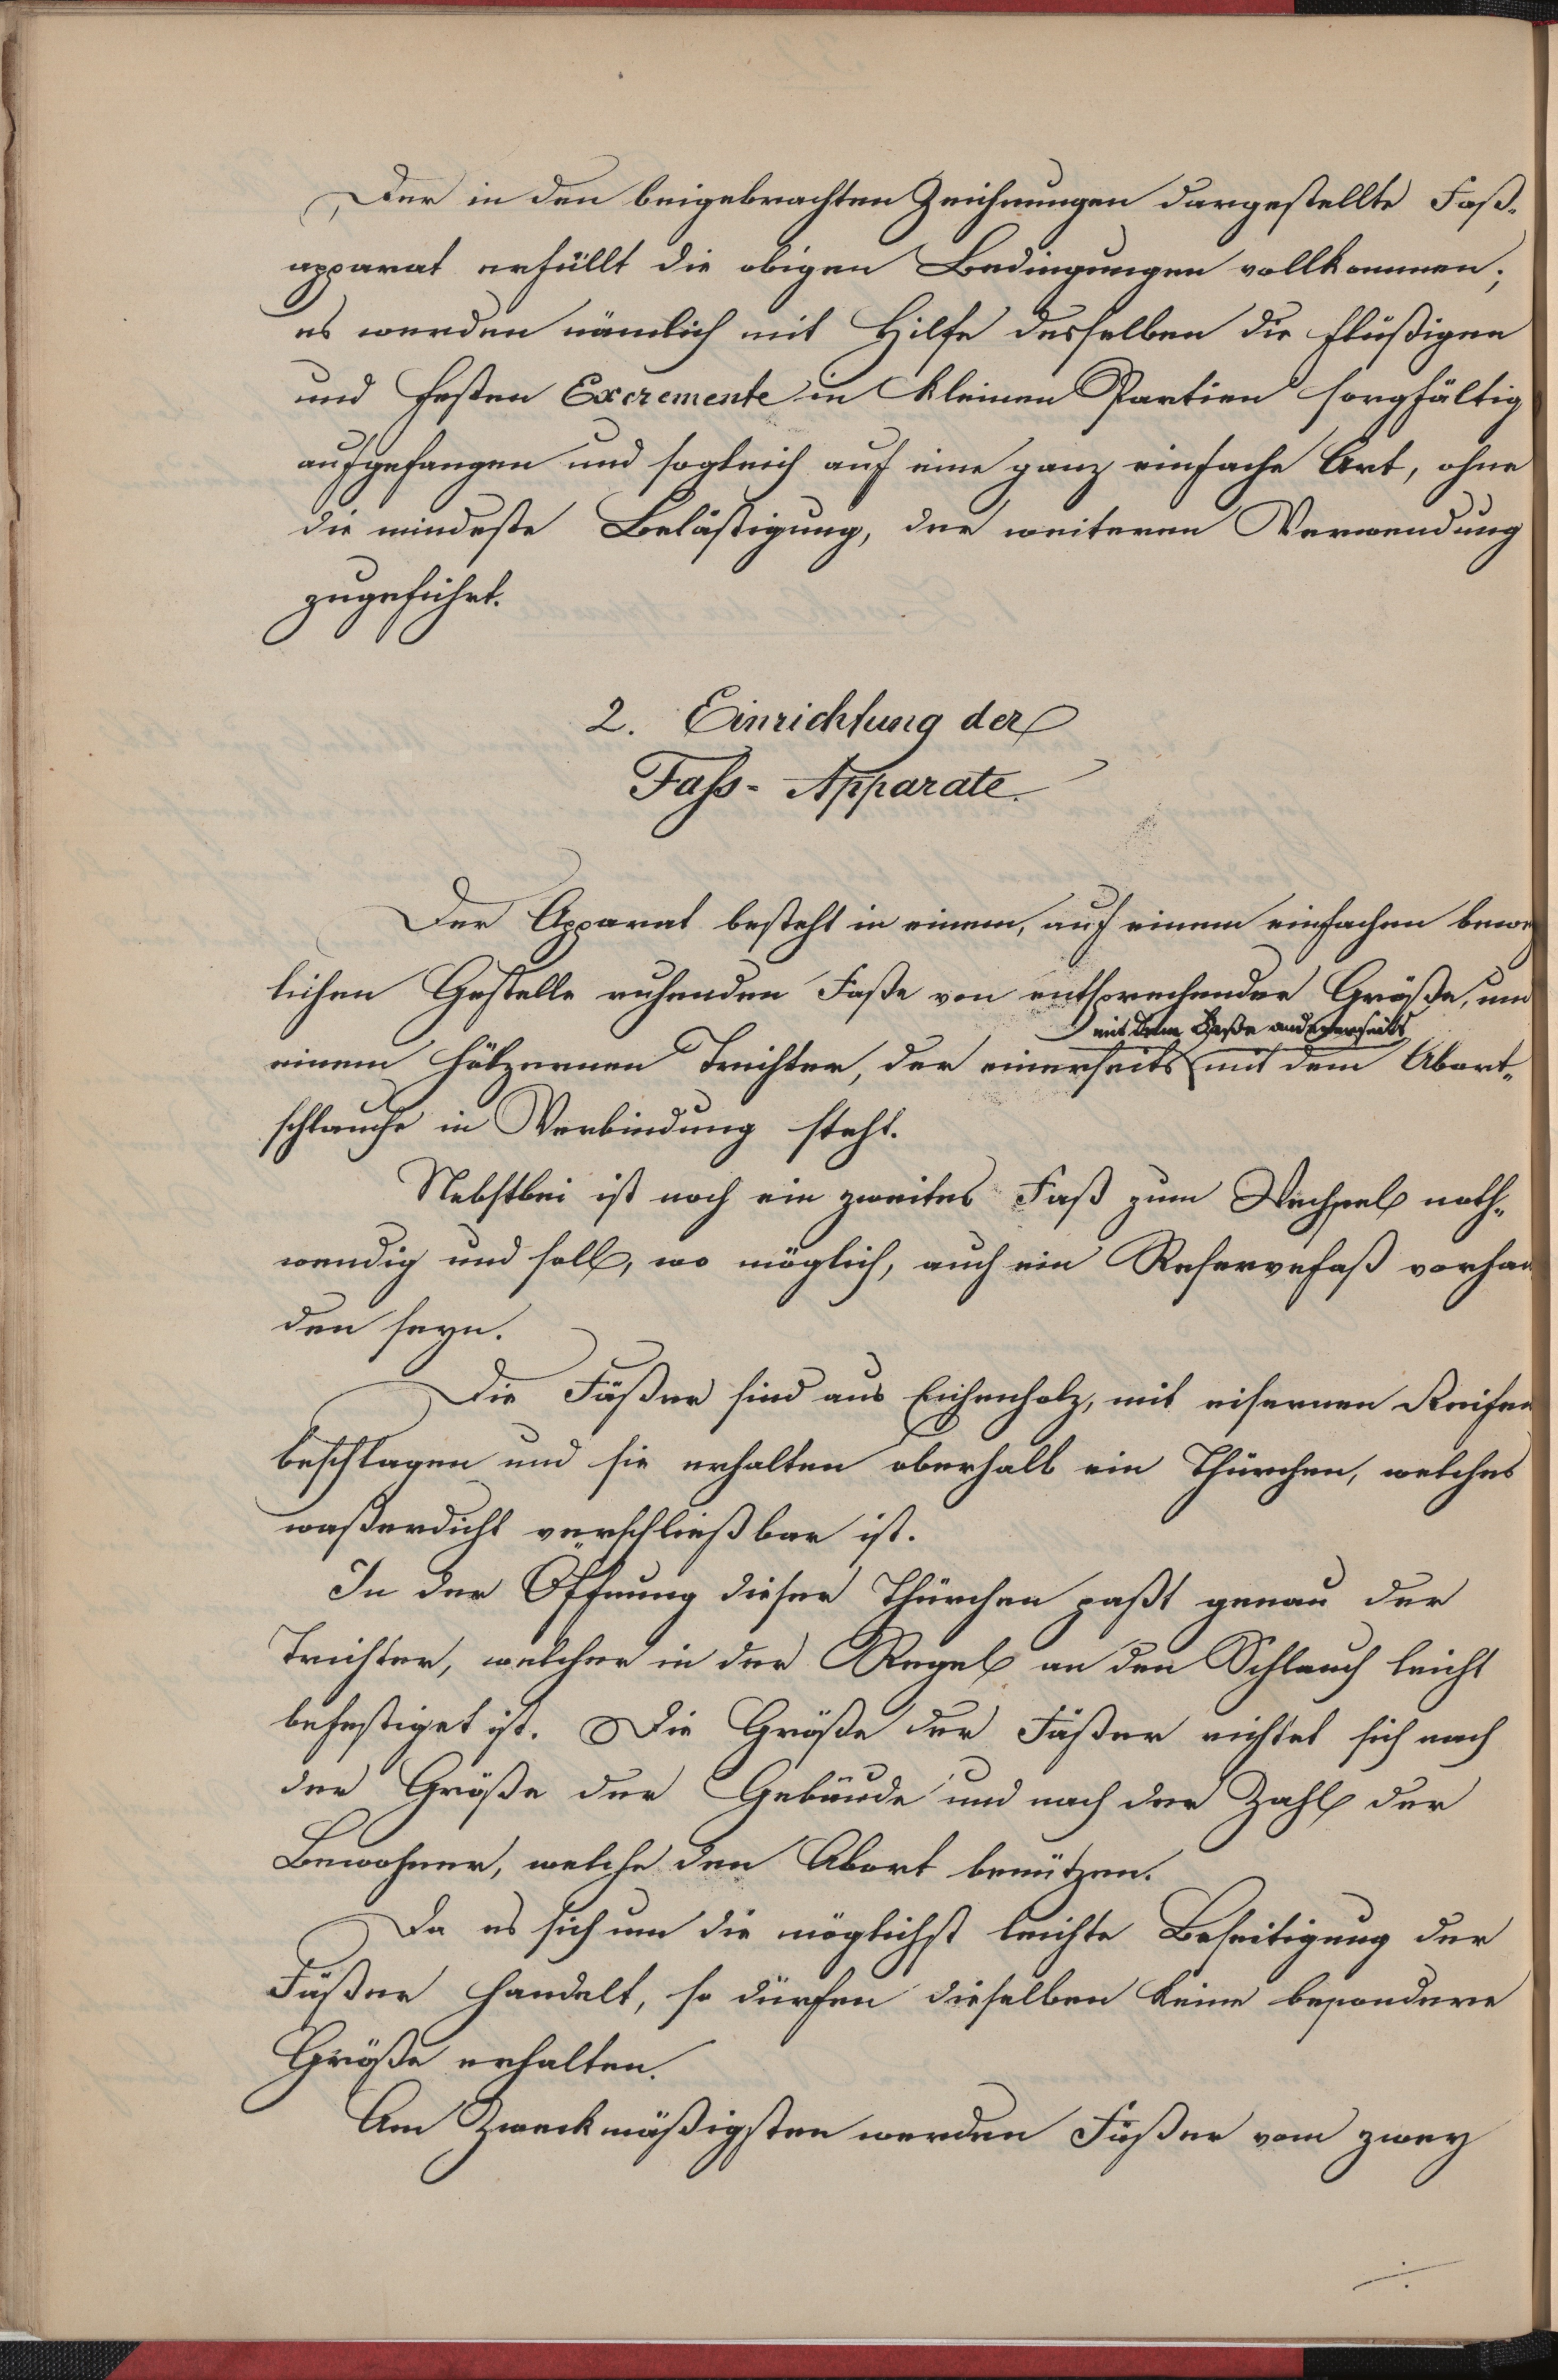 Der in den beigebrachten Zeichnungen dargestellte Faß-
apparat erfüllt die obigen Bedingungen vollkommen;
es werden nämlich mit Hilfe desselben die flüßigen
und festen Excremente in kleinen Partien sorgfältig
aufgefangen und sogleich auf eine ganz einfache Art, ohne
die mindeste Belästigung, der weiteren Verwendung
zugeführt.
2. Einrichtung der
Fass-Apparate.
Der Apparat besteht in einem, auf einem einfachen beweg
lichen Gestelle ruhenden Faße von entsprechender Größe, und
mit dem Faße andererseits
einem hölzernen Trichter, der einerseits mit dem Abort-
schlauche in Verbindung steht.
Nebstbei ist noch ein zweites Faß zum Wechsel noth-
wendig und soll, wo möglich, auch ein Reservefaß vorhan
den seyn.
Die Fäßer sind aus Eichenholz, mit eisernen Reifen
beschlagen und sie erhalten oberhalb ein Thürchen, welches
waßerdicht verschließbar ist.
In der Öffnung dieser Thürchen paßt genau der
Trichter, welcher in der Regel an den Schlauch leicht
befestiget ist. Die Größe der Fäßer richtet sich nach
der Größe der Gebäude und nach der Zahl der
Bewohner, welche den Abort benützen.
Da es sich um die möglichst leichte Beseitigung der
Fäßer handelt, so dürfen dieselben keine besondere
Größe erhalten.
Am Zweckmäßigsten werden Fäßer vom zwey